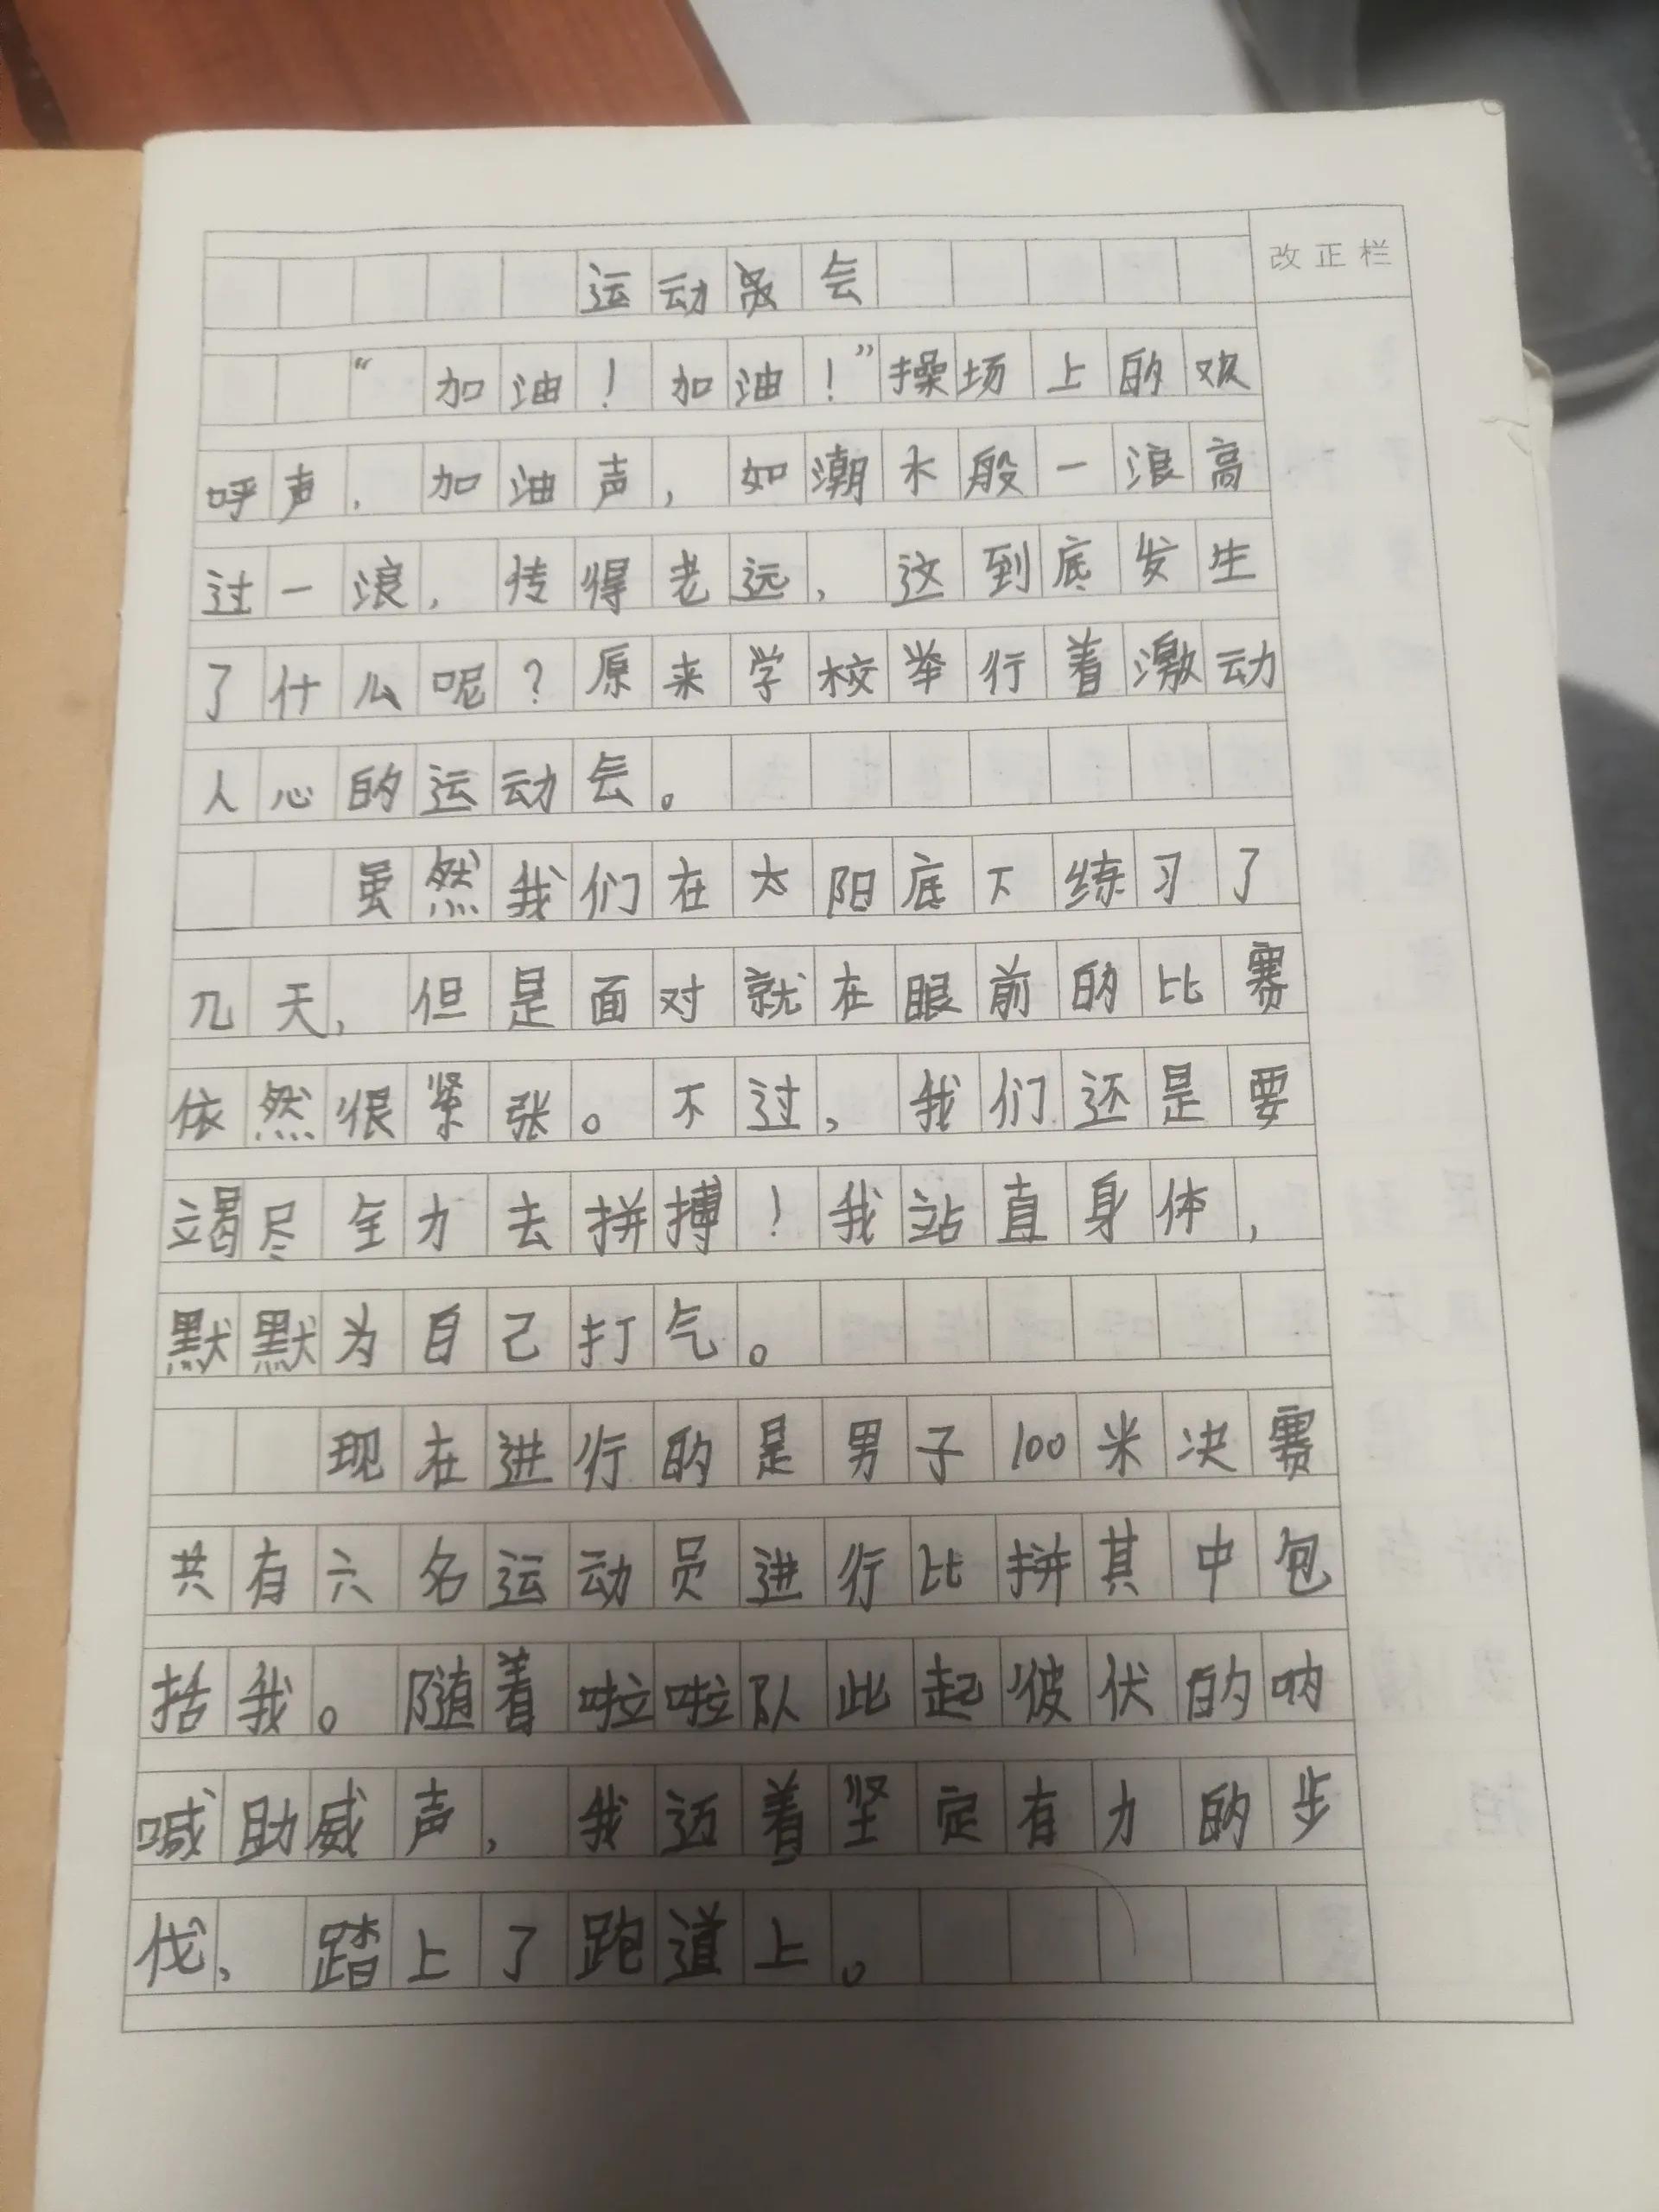 运动会
改正栏
“加油！加油！”操场上的欢
呼声，加油声，如潮水般一浪高
过一浪，传得老远，这到底发生
了什么呢？原来学校举行着激动
人心的运动会。
虽然我们在太阳底下练习了
几天，但是面对就在眼前的比赛
依然很紧张。不过，我们还是要
竭尽全力去拼搏！我站直身体，
默默为自己打气。
现在进行的是男子100米决赛
共有六名运动员进行比拼其中包
括我。随着啦啦队此起彼伏的呐
喊助威声，我迈着坚定有力的步
伐，踏上了跑道上。